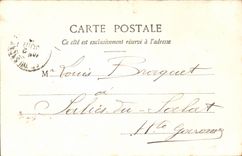 CARTE POSTALE
Ce côté est exclusivement réservé à l'adresse
M. Louis
à
Salies du Salat
Hte Garonne